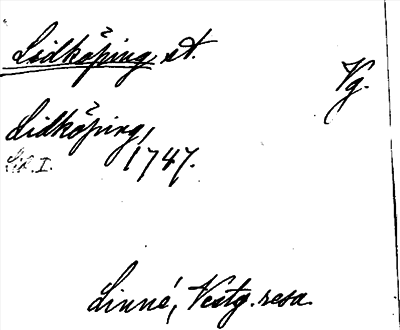 Lidköping, st.
Vg.
Lidköping,
1747.
Linné, Vestg. resa.